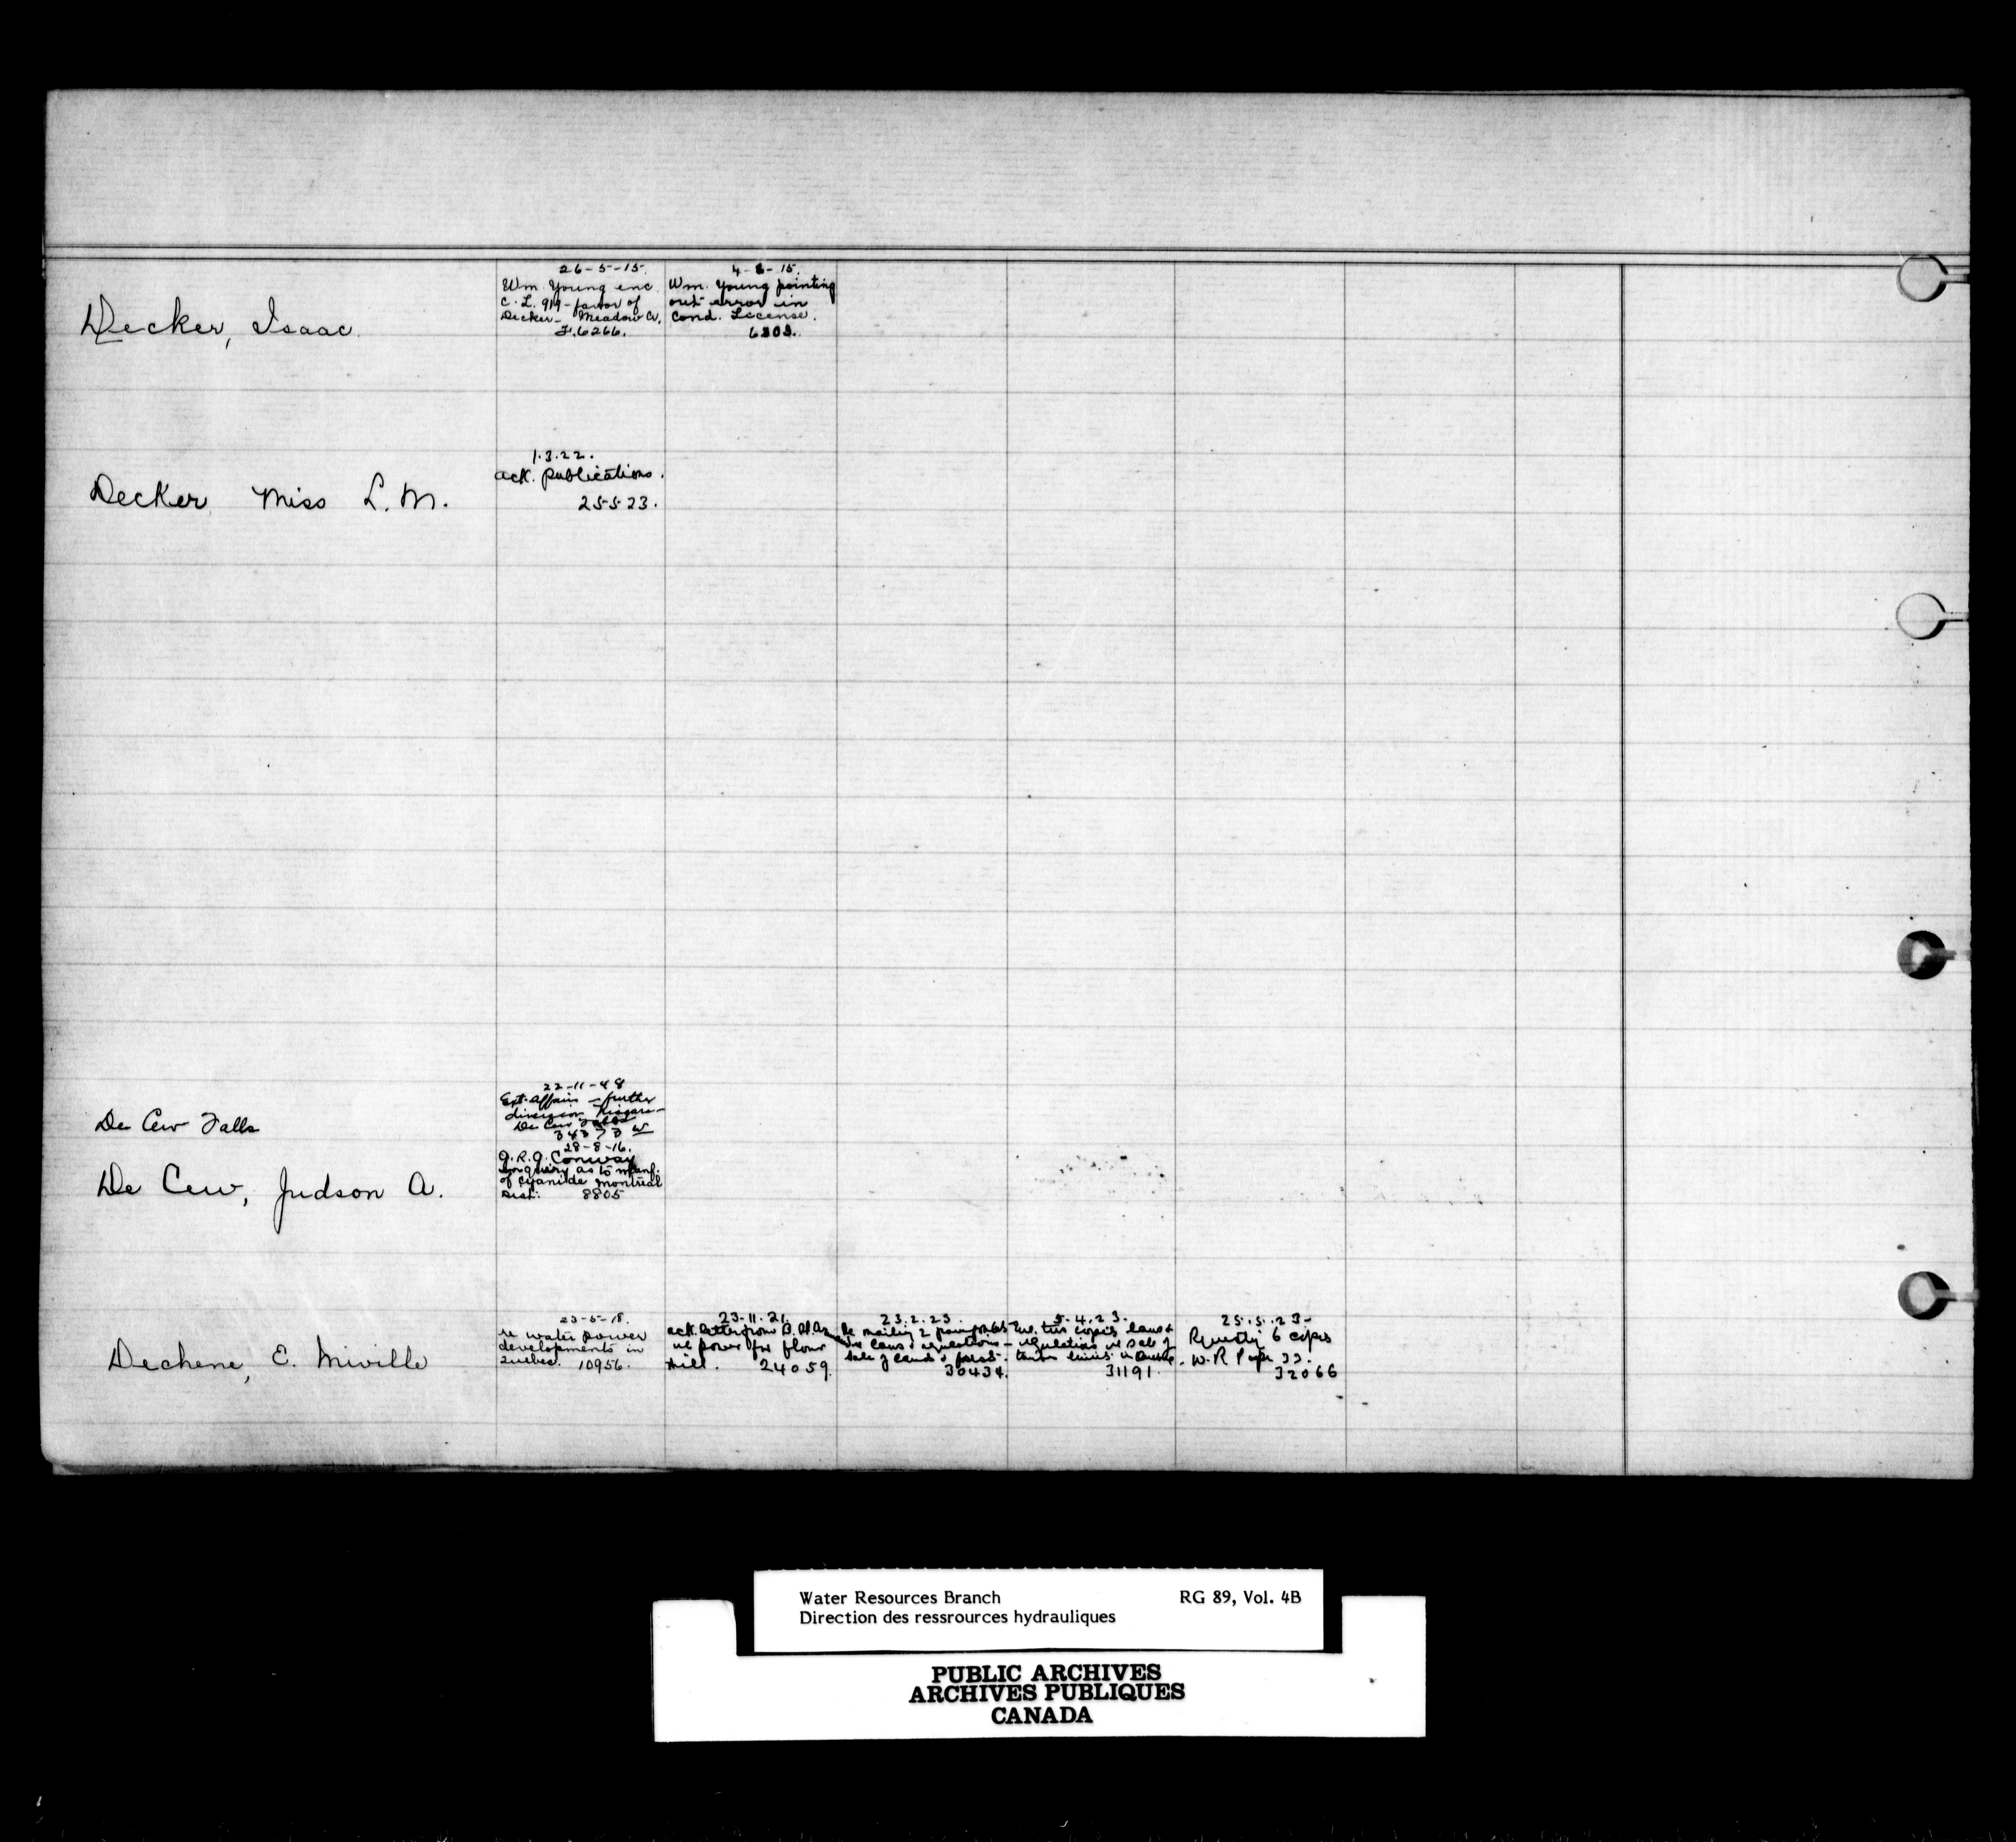 Decker, Isaac.
26-5-15.
Wm. Young enc
C. L. 919 - favor of
Decker - Meadow Cr.
F. 6266.
4-8-15.
Wm. Young pointing
out error in
Cond. License.
6803.
Decker Miss L. M.
1.3.22.
ack. publications.
25523.
De Cew Falls
22-11-48
Ext. Affairs - further
diversion Niagara -
De Cew Falls
De Cew, Judson A.
28-8-16.
G. R. G. Conway
Enquiry as to manf.
of cyanide Montreal
Dist. 8805
Dechene, E. Miville
23-5-18.
re water power
developments in
Quebec. 10956.
23.11.21.
ack. letter from
re power for flour
Mill. 24059.
23.2.23.
Re mailing 2 pamphlets
laws & regulations -
sale of lands & forest.
30434.
5.4.23.
two copies laws &
regulations re sale of
timber limits in Quebec.
31191.
25.5.23-
Requests 6 copies
W. R. Paper 33.
32066
Water Resources Branch RG 89, Vol. 4B
Direction des ressrources hydrauliques
PUBLIC ARCHIVES
ARCHIVES PUBLIQUES
CANADA